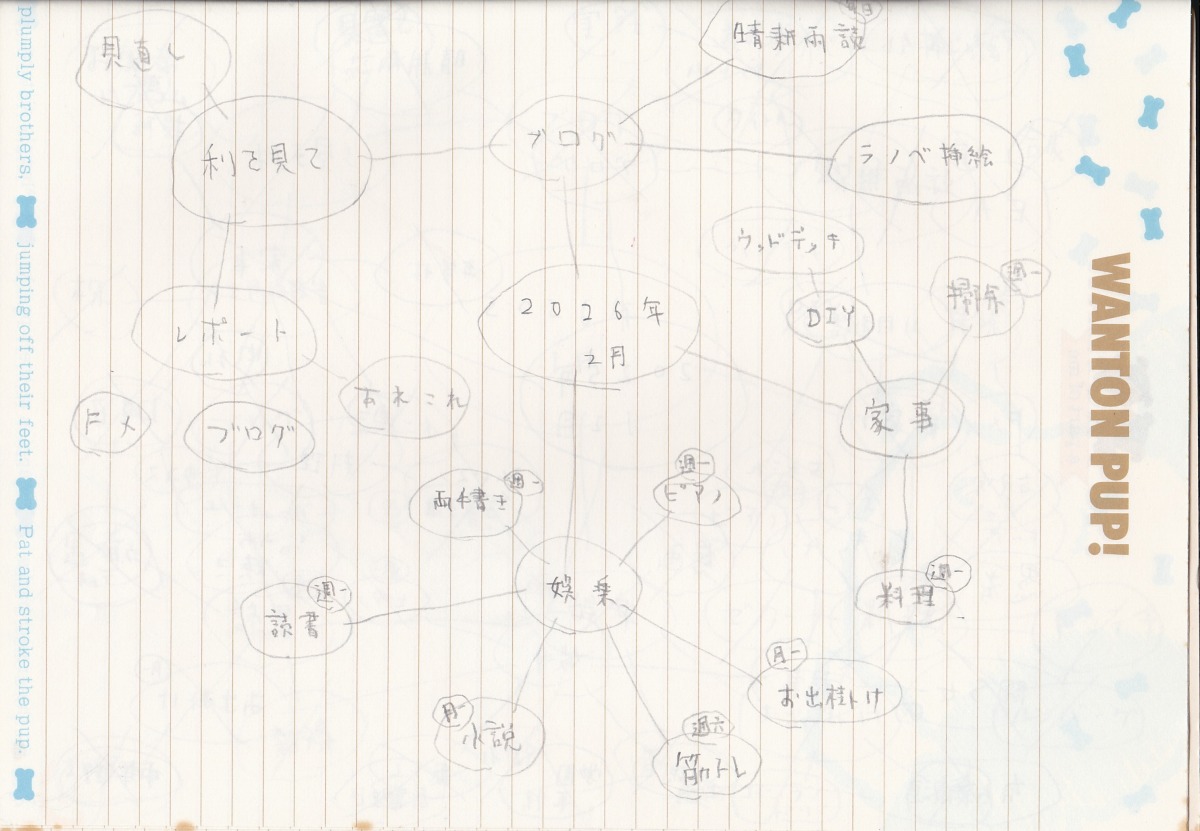 見直し
晴耕雨読
利を見て
ブログ
ラノベ挿絵
ウッドデッキ
週一
掃除
2026年
2月
DIY
レポート
あれこれ
家事
ドメ
ブログ
週一
両手書き
週一
ピアノ
娯楽
週一
読書
週一
料理
月一
お出掛け
月一
小説
週六
筋トレ
plumply brothers.
jumping off their feet.
Pat and stroke the pup.
WANTON PUP!